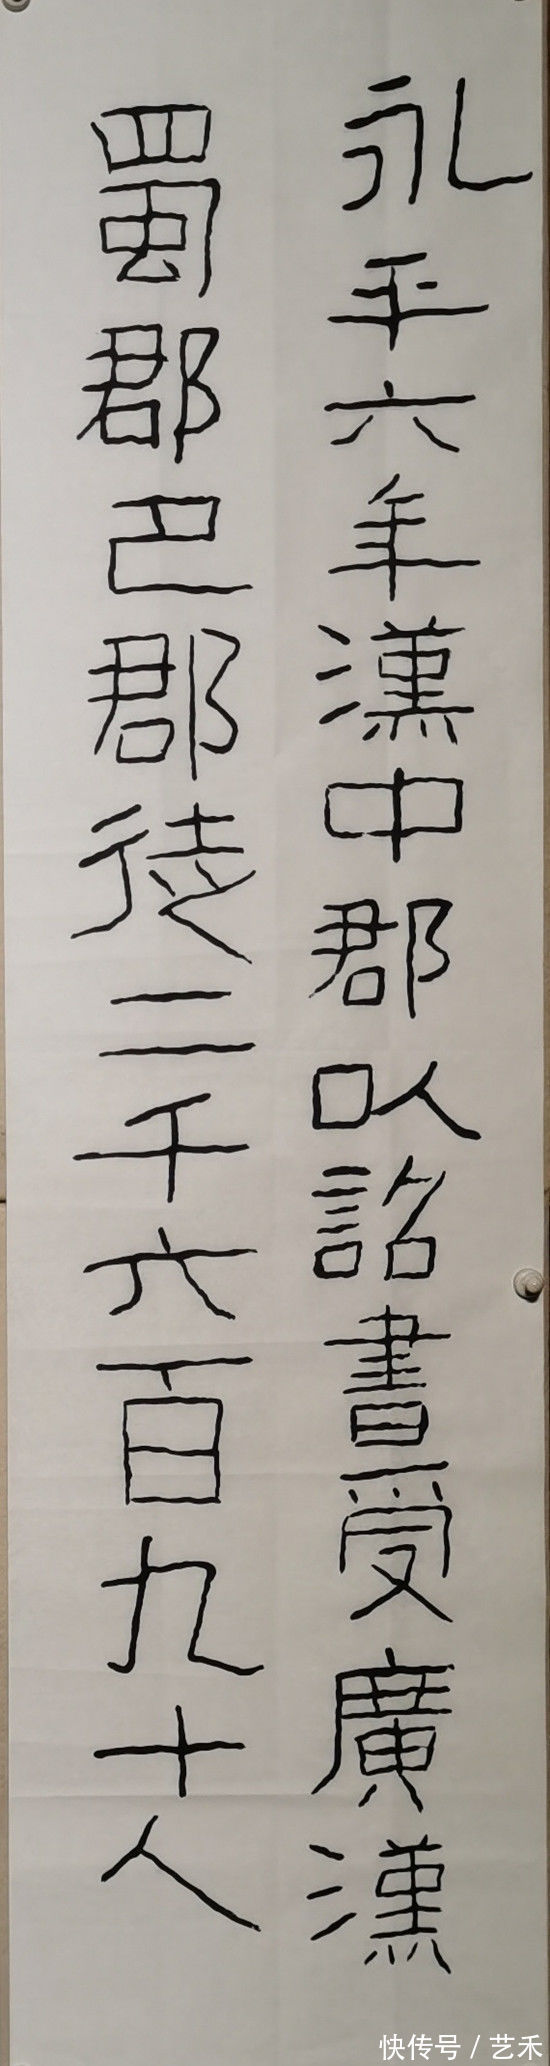 永平六年漢中郡以詔書受廣漢
蜀郡巴郡徒二千六百九十人
快传号 / 艺禾